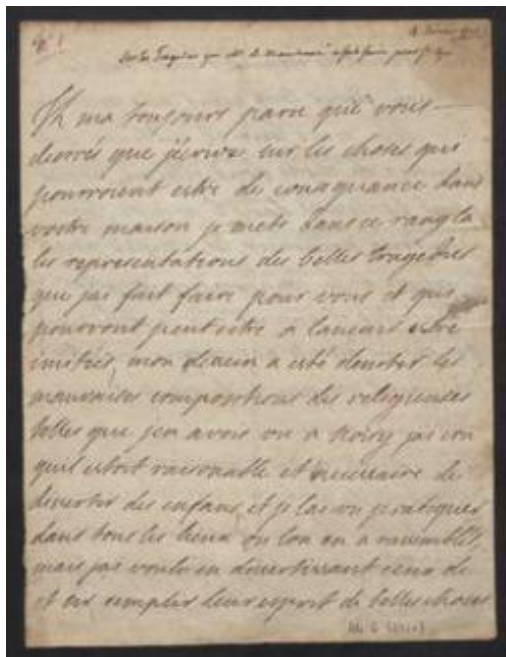 Il ma tousjours paru que vous
desirés que j'écrive sur les choses qui
pourroient estre de consequance dans
vostre maison je mets dans ce rang la
les representations des belles tragedies
que jai fait faire pour vous et qui
pourront peut estre a lavenir estre
imitées, mon dessein a esté deviter les
mauvaises compositions des religieuses
telles que jen avois vu a Noisy jai cru
quil estoit raisonable et necessaire de
divertir des enfans et je lai vu pratiquer
dans tous les lieux ou lon en a rassemblés
mais jai voulu en divertissant ceux de
st cir remplir leur esprit de belles choses